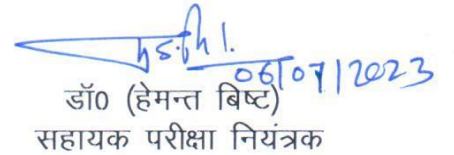 06/07/2023
डॉ0 (हेमन्त बिष्ट)
सहायक परीक्षा नियंत्रक